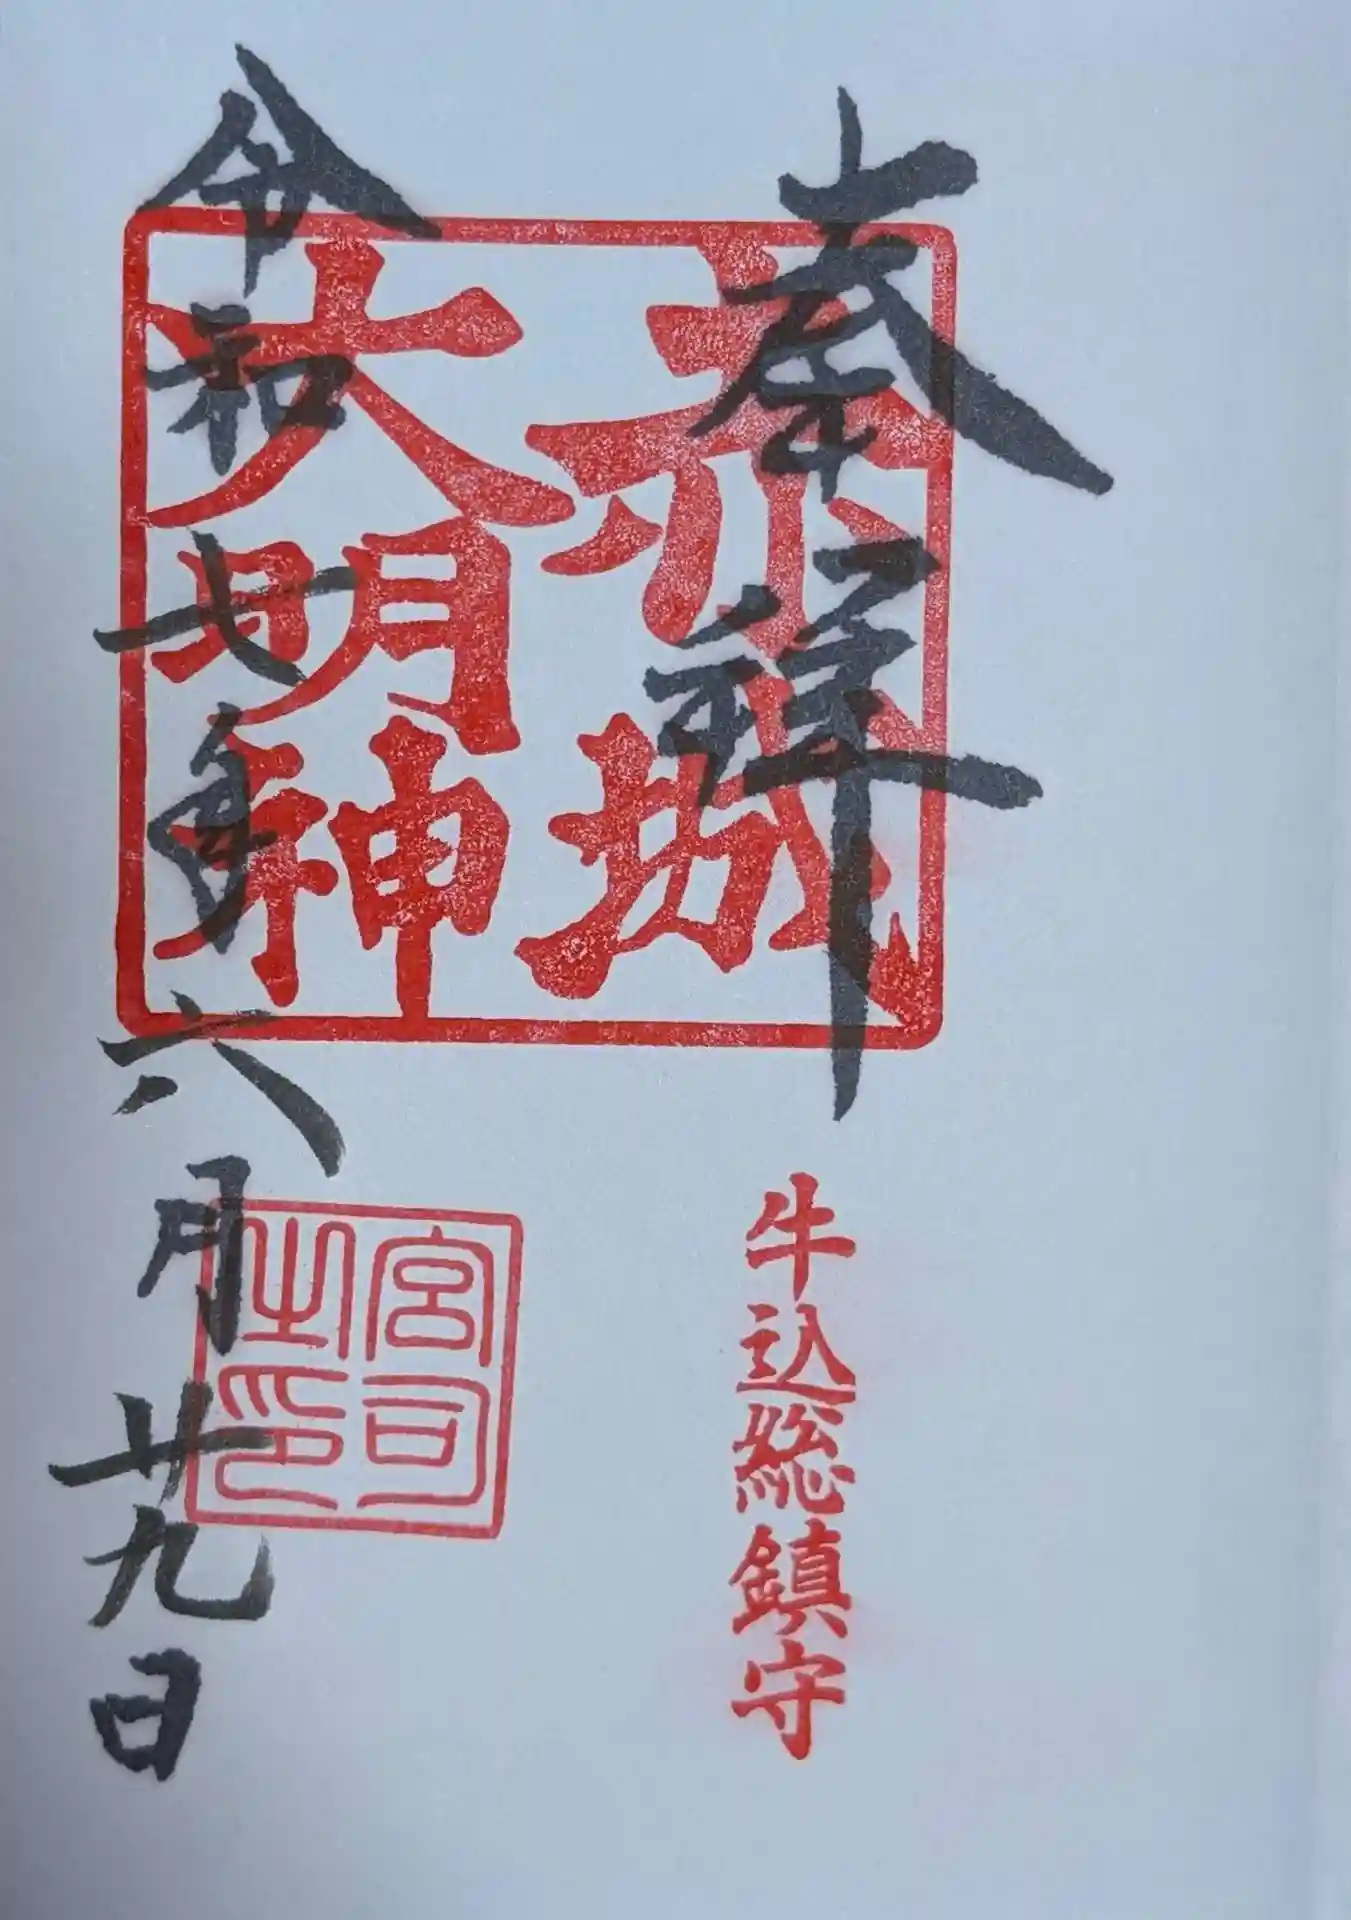 奉拝
赤城
大明神
牛込総鎮守
宮司
之印
令和七年六月廿九日